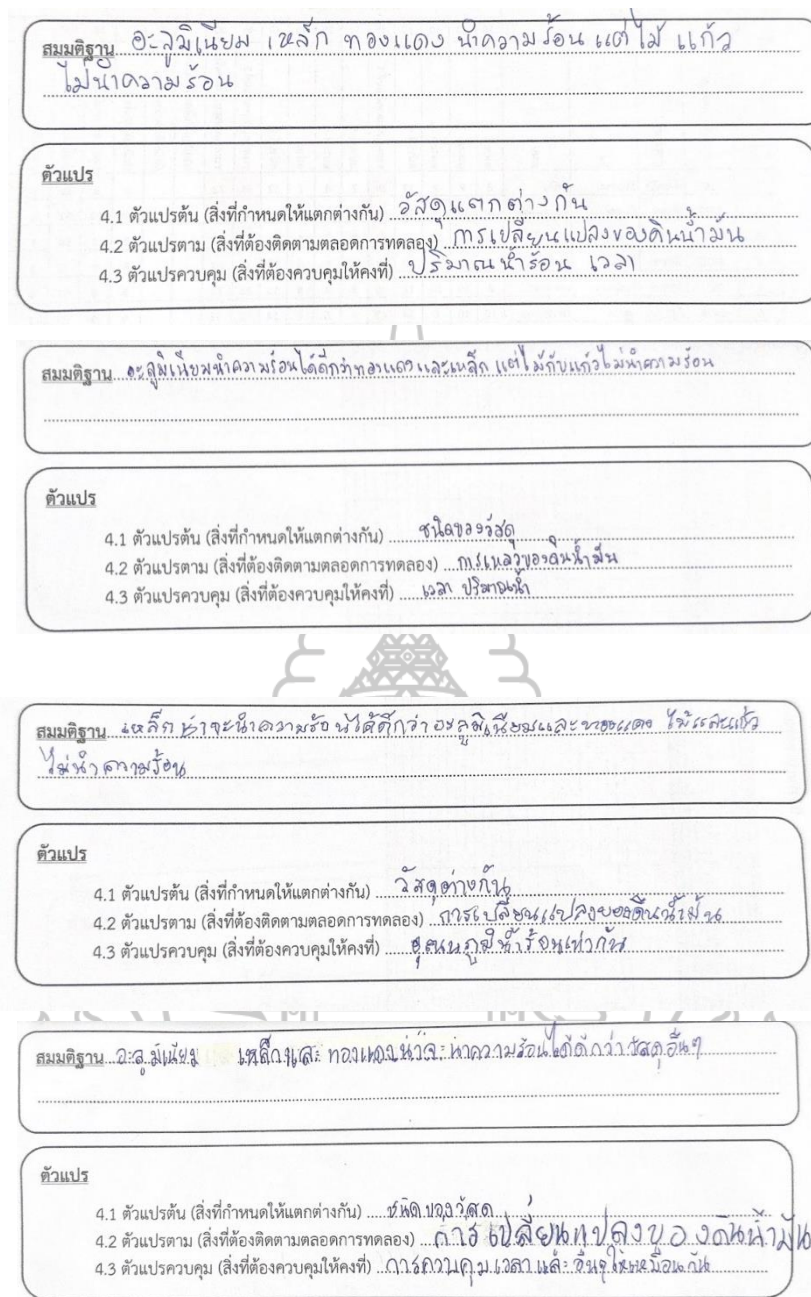 สมมติฐาน อะลูมิเนียม เหล็ก ทองแดง นำความร้อน แต่ไม้ แก้ว
ไม่นำความร้อน
ตัวแปร
4.1 ตัวแปรต้น (สิ่งที่กำหนดให้แตกต่างกัน) วัสดุแตกต่างกัน
4.2 ตัวแปรตาม (สิ่งที่ต้องติดตามตลอดการทดลอง) การเปลี่ยนแปลงของดินน้ำมัน
4.3 ตัวแปรควบคุม (สิ่งที่ต้องควบคุมให้คงที่) ปริมาณน้ำร้อน เวลา
สมมติฐาน อะลูมิเนียมนำความร้อนได้ดีกว่าทองแดงและเหล็ก แต่ไม้กับแก้วไม่นำความร้อน
ตัวแปร
4.1 ตัวแปรต้น (สิ่งที่กำหนดให้แตกต่างกัน) ชนิดของวัสดุ
4.2 ตัวแปรตาม (สิ่งที่ต้องติดตามตลอดการทดลอง) การเหลวของดินน้ำมัน
4.3 ตัวแปรควบคุม (สิ่งที่ต้องควบคุมให้คงที่) เวลา ปริมาณน้ำ
สมมติฐาน เหล็กน่าจะนำความร้อนได้ดีกว่า อะลูมิเนียมและทองแดง ไม้และแก้ว
ไม่นำความร้อน
ตัวแปร
4.1 ตัวแปรต้น (สิ่งที่กำหนดให้แตกต่างกัน) วัสดุต่างกัน
4.2 ตัวแปรตาม (สิ่งที่ต้องติดตามตลอดการทดลอง) การเปลี่ยนแปลงของดินน้ำมัน
4.3 ตัวแปรควบคุม (สิ่งที่ต้องควบคุมให้คงที่) อุณหภูมิน้ำร้อนเท่ากัน
สมมติฐาน อะลูมิเนียม เหล็กและ ทองแดงน่าจะนำความร้อนได้ดีกว่าวัสดุอื่นๆ
ตัวแปร
4.1 ตัวแปรต้น (สิ่งที่กำหนดให้แตกต่างกัน) ชนิดของวัสดุ
4.2 ตัวแปรตาม (สิ่งที่ต้องติดตามตลอดการทดลอง) การเปลี่ยนแปลงของดินน้ำมัน
4.3 ตัวแปรควบคุม (สิ่งที่ต้องควบคุมให้คงที่) การควบคุมเวลาและอื่นๆให้เหมือนกัน